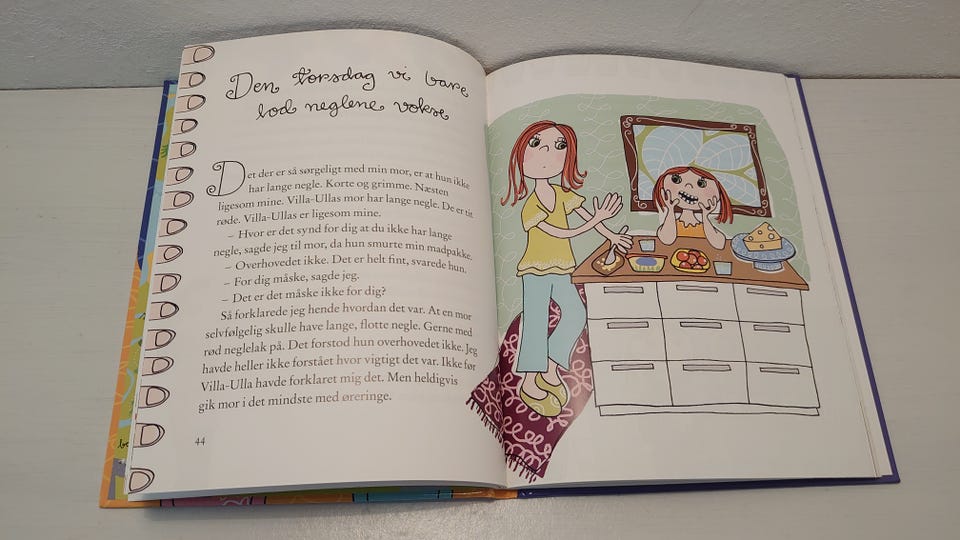 Den torsdag vi bare
lod neglene vokse
Det der er så sørgeligt med min mor, er at hun ikke
har lange negle. Korte og grimme. Næsten
ligesom mine. Villa-Ullas mor har lange negle. De er tit
røde. Villa-Ullas er ligesom mine.
– Hvor er det synd for dig at du ikke har lange
negle, sagde jeg til mor, da hun smurte min madpakke.
– Overhovedet ikke. Det er helt fint, svarede hun.
– For dig måske, sagde jeg.
– Det er det måske ikke for dig?
Så forklarede jeg hende hvordan det var. At en mor
selvfølgelig skulle have lange, flotte negle. Gerne med
rød neglelak på. Det forstod hun overhovedet ikke. Jeg
havde heller ikke forstået hvor vigtigt det var. Ikke før
Villa-Ulla havde forklaret mig det. Men heldigvis
gik mor i det mindste med øreringe.
44